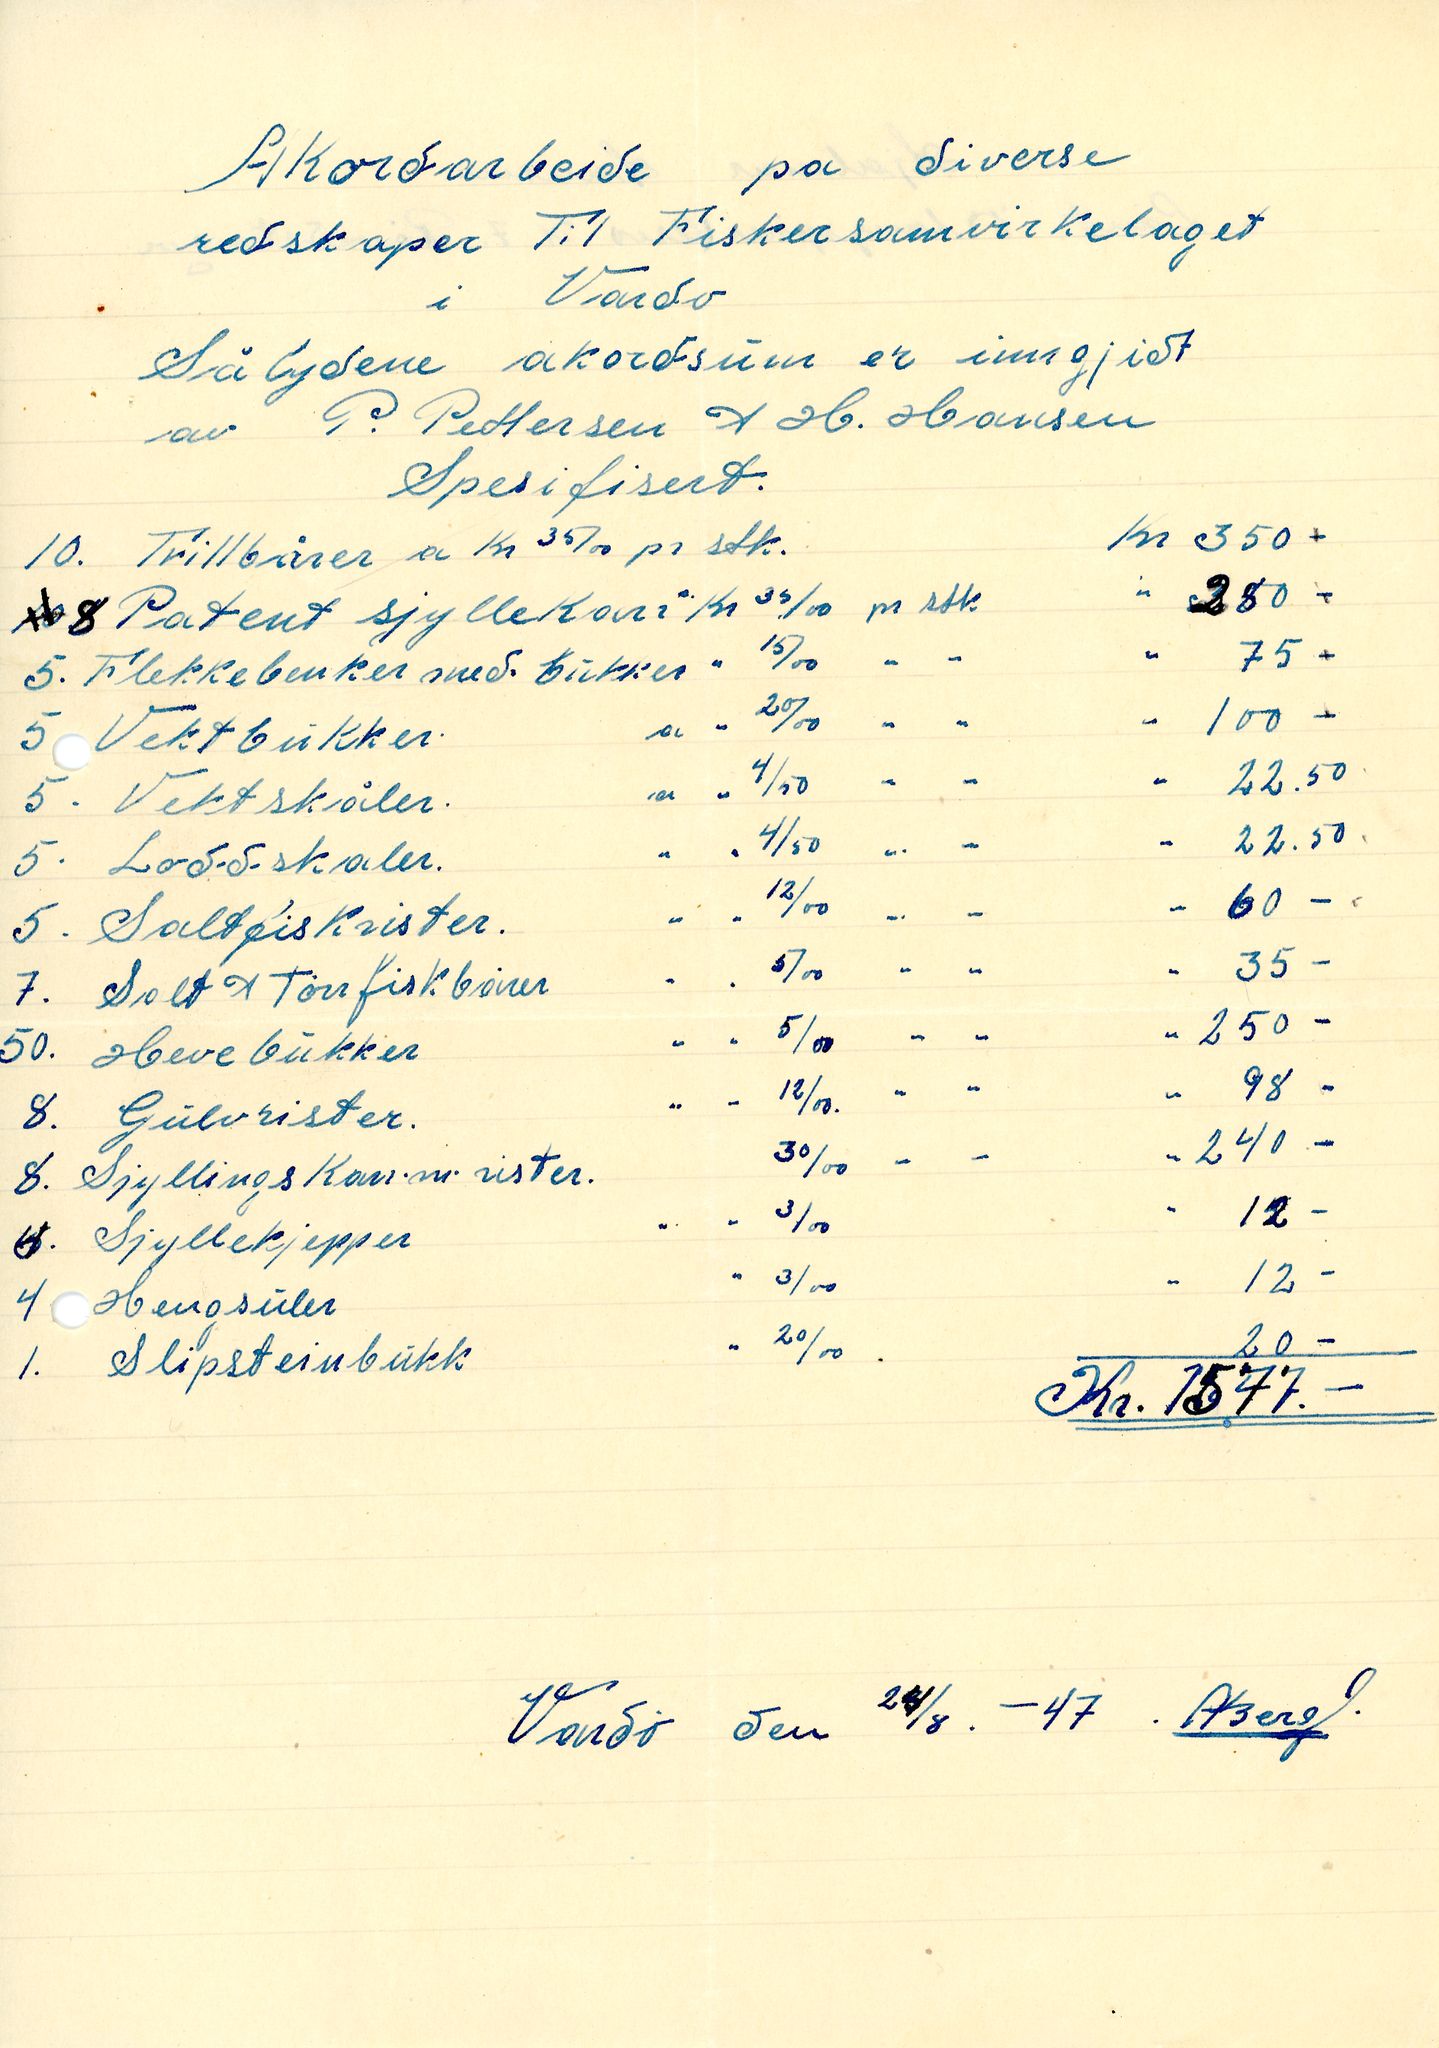 Akordarbeide pa diverse
redskaper Til Fiskersamvirkelaget
i Vardo
Sålydene akordsum er inngjidt
av P. Pettersen & H. Hansen
Spesifisert.
10. Trillbårer a Kr 35/00 pr stk. Kr 350 -
8 Patent sjyllekar " Kr 35/00 pr stk " 280 -
5. Flekkebenker med. bukker " 15/00 " " " 75 -
5 Vektbukker. a " 20/00 " " " 100 -
5. Vektskåler. a " 4/50 " " " 22.50
5. Loddskaler. " " 4/50 " " " 22.50
5. Saltfiskrister. " " 12/00 " " " 60 -
7. Salt & Törrfiskbårer " " 5/00 " " " 35 -
50. Hevebukker " " 5/00 " " " 250 -
8. Gulvrister. " " 12/00. " " " 98 -
8. Sjyllingskar.m.rister. 30/00 " " " 240 -
4. Sjyllekjepper " " 3/00 " 12 -
4 Hengsuler " 3/00 " 12 -
1. Slipsteinbukk " 20/00 20 -
Kr. 1577. -
Vardö den 24/8. -47. ABerg